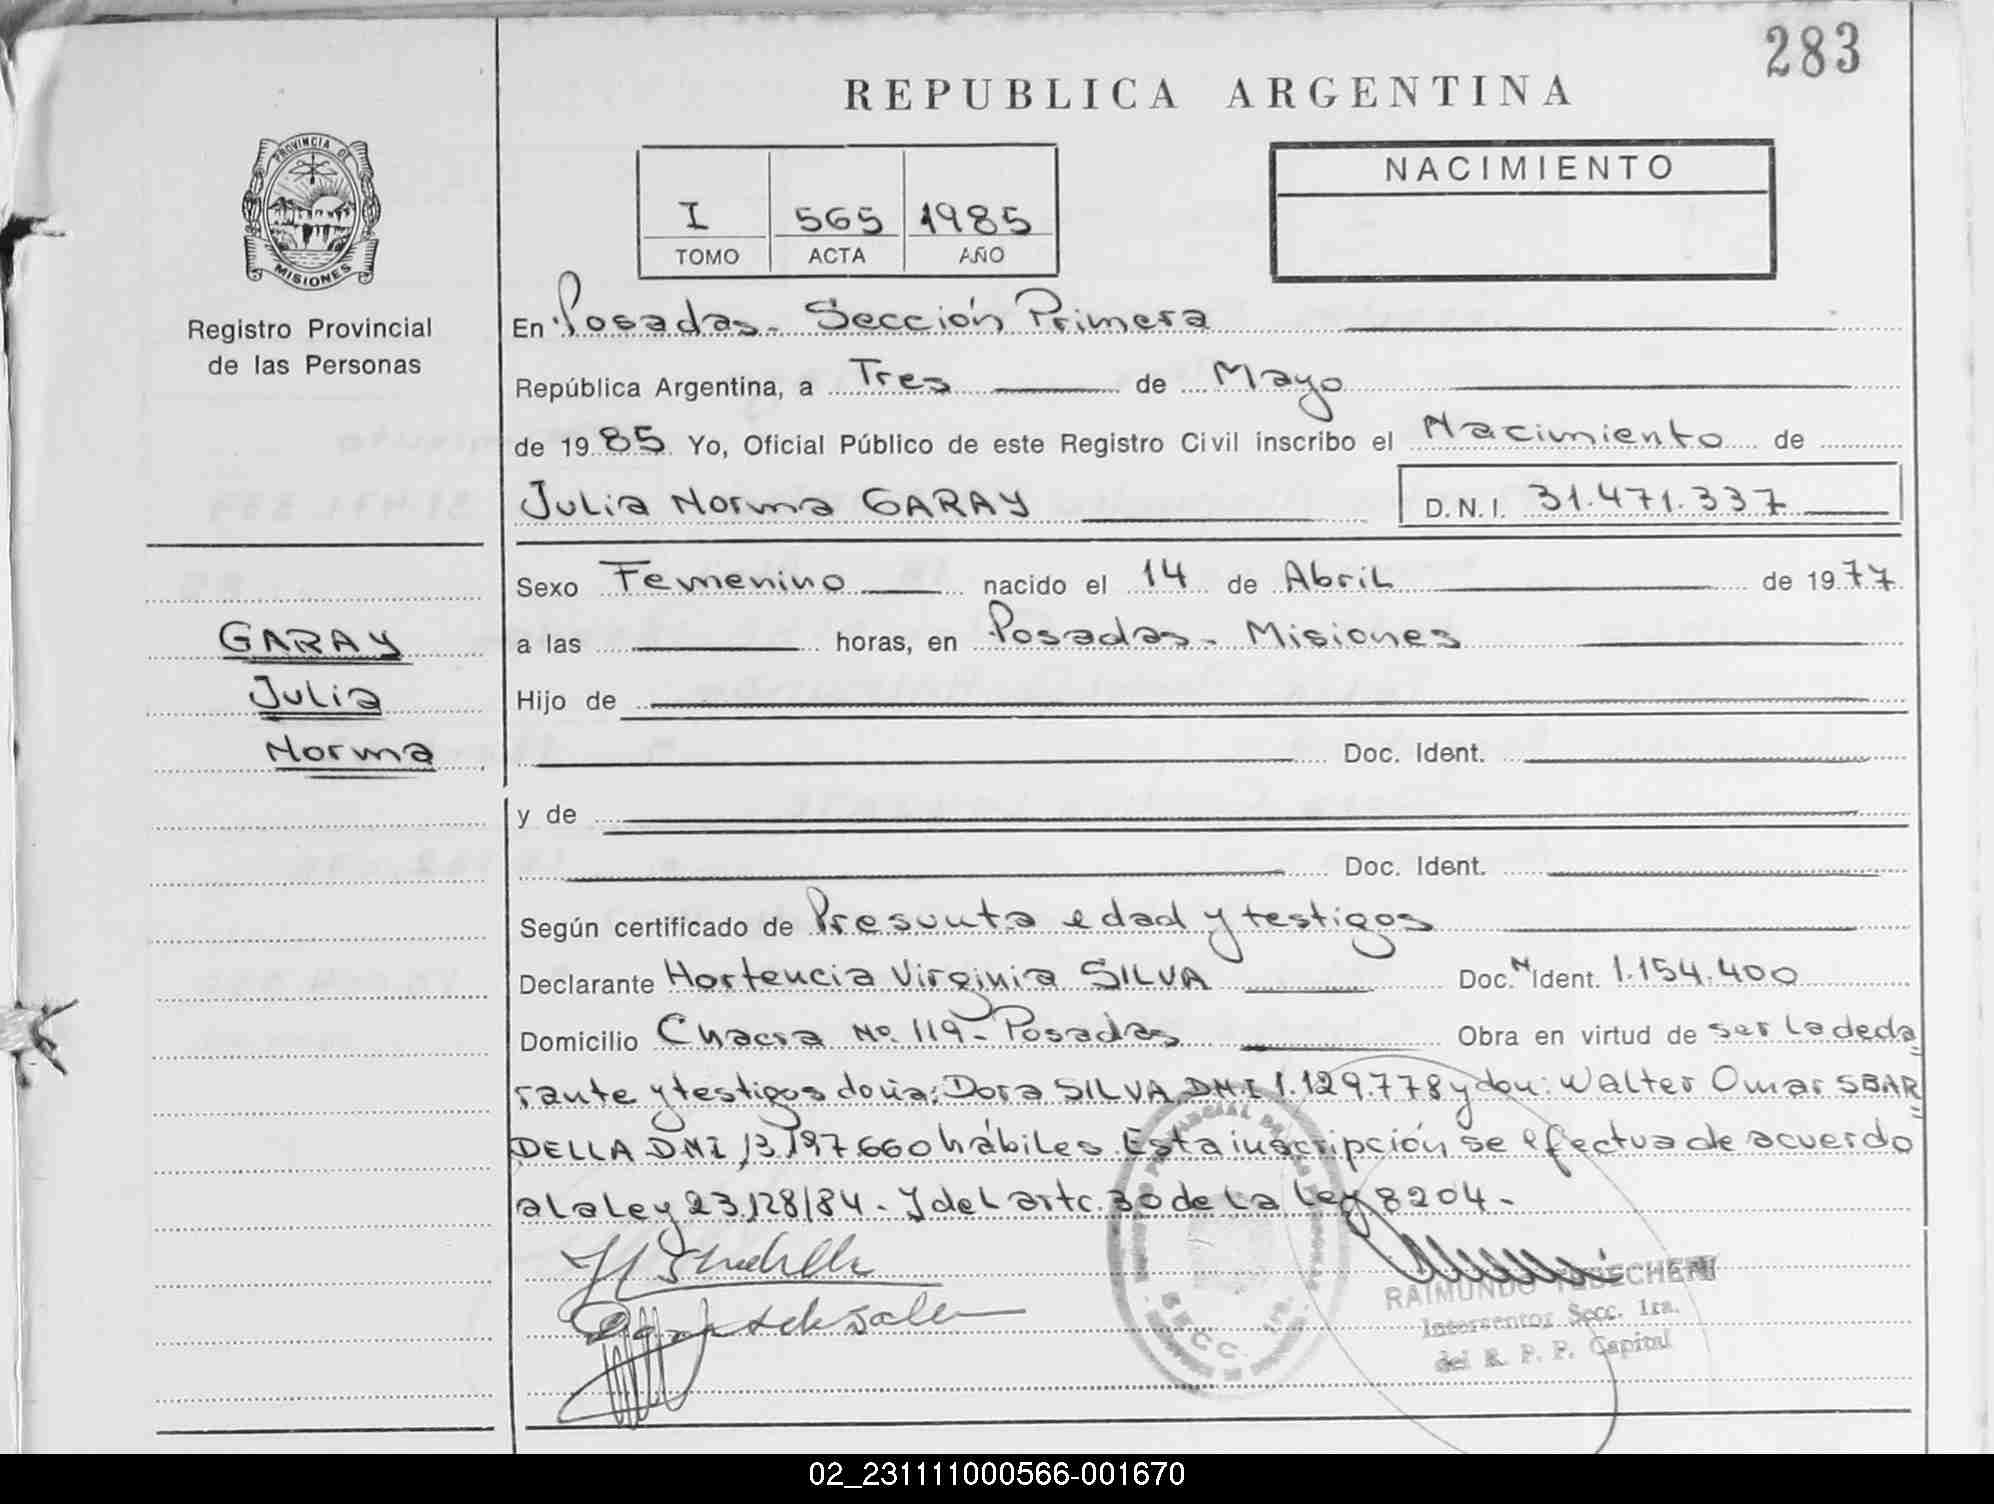 283
REPUBLICA ARGENTINA
PROVINCIA DE
MISIONES
Registro Provincial
de las Personas
I 565 1985
TOMO ACTA AÑO
NACIMIENTO
En Posadas - Sección Primera
República Argentina, a Tres de Mayo
de 1985 Yo, Oficial Público de este Registro Civil inscribo el Nacimiento de
Julia Norma GARAY D.N.I. 31.471.337
Sexo Femenino nacido el 14 de Abril de 1977
GARAY
Julia
Norma
a las horas, en Posadas - Misiones
Hijo de
Doc. Ident.
y de
Doc. Ident.
Según certificado de Presunta edad y testigos
Declarante Hortencia Virginia SILVA Doc. N Ident. 1.154.400
Domicilio Chacra Nº 119 - Posadas Obra en virtud de ser la decla
rante y testigos doña: Dora SILVA DNI 1.129.778 y don: Walter Omar SBAR
DELLA DNI 13.197.660 hábiles. Esta inscripción se efectua de acuerdo
a la ley 23.128/84 - Y del artc. 30 de la Ley 8204 -
SECC. 1ra.
RAIMUNDO
Interventor Secc. 1ra.
del R. P. P. Capital
02_231111000566-001670